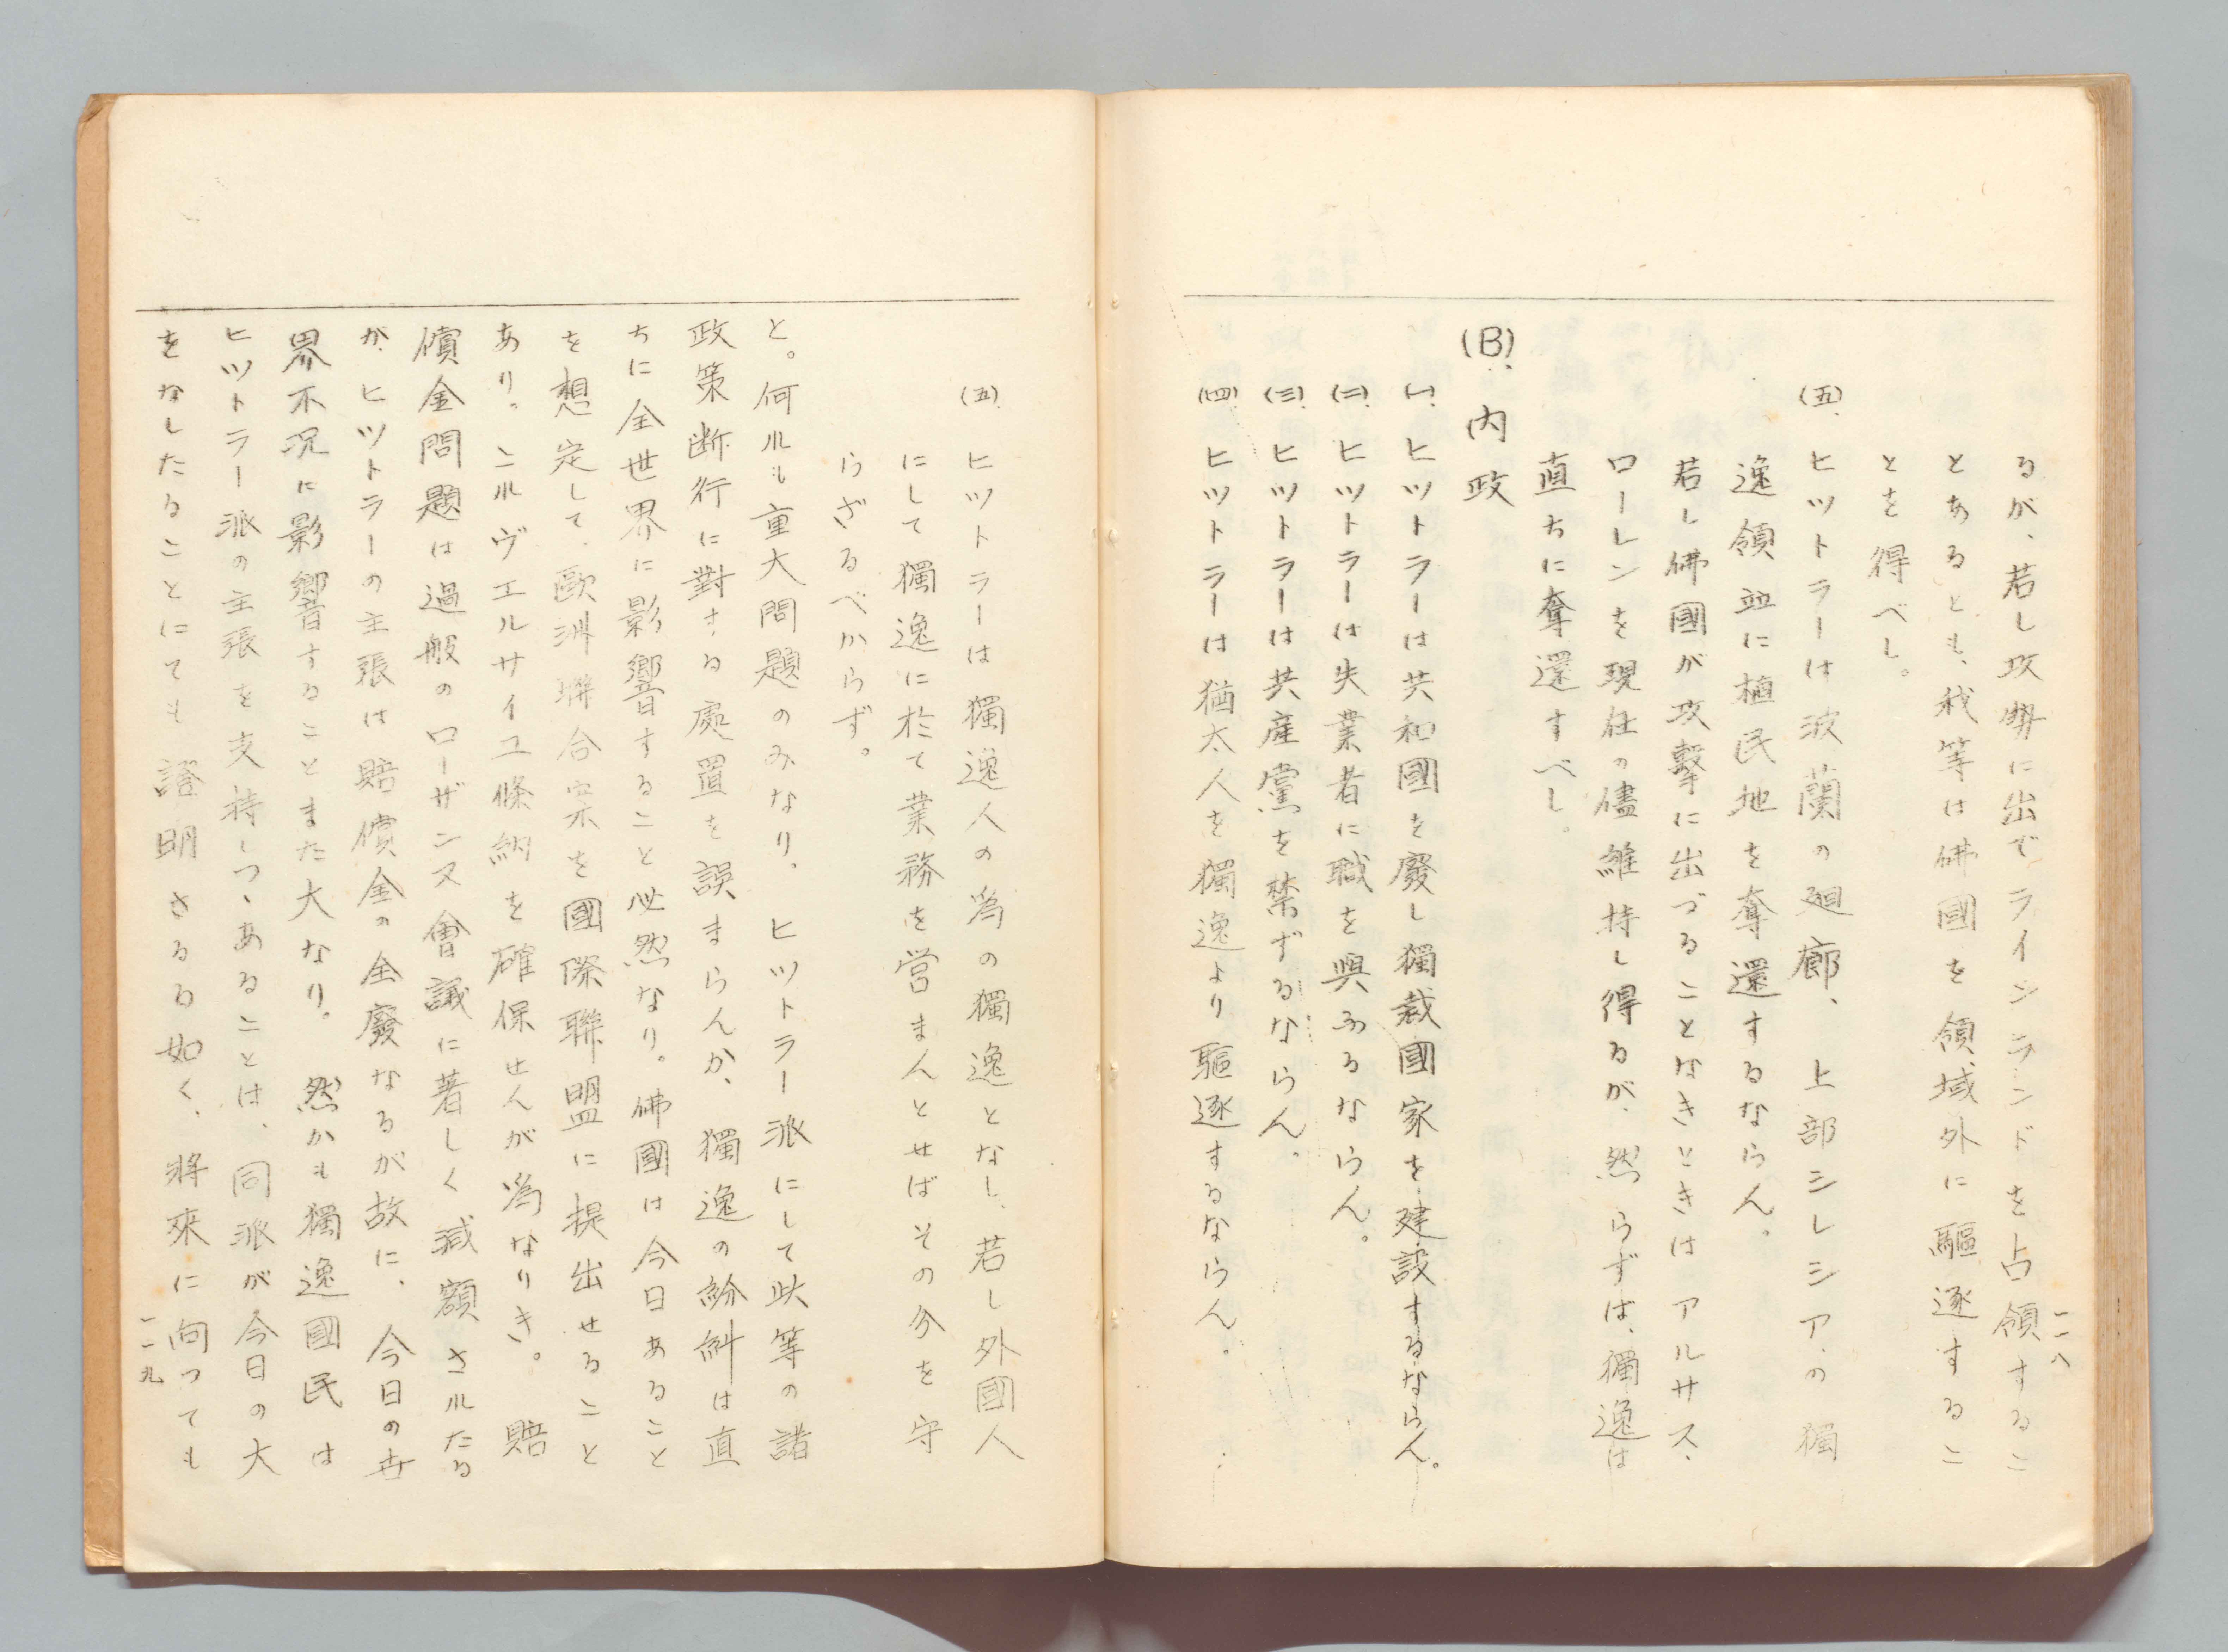 るが、若し攻勢に出でラインランドを占領するこ
とあるとも、我等は佛國を領域外に驅逐するこ
とを得べし。
(五)、ヒツトラーは波蘭の廻廊、上部シレシアの獨
逸領並に植民地を奪還するならん。
若し佛國が攻擊に出づることなきときはアルサス、
ローレンを現在の儘維持し得るが、然らずば、獨逸は
直ちに奪還すべし。
(B)、內政
(一)、ヒツトラーは共和國を廢し獨裁國家を建設するならん。
(二)、ヒツトラーは失業者に職を與ふるならん。
(三)、ヒツトラーは共産黨を禁ずるならん。
(四)、ヒツトラーは猶太人を獨逸より驅逐するならん。
一一八
(五)、ヒツトラーは獨逸人の爲の獨逸となし、若し外國人
にして獨逸に於て業務を営まんとせばその分を守
らざるべからず。
と。何れも重大問題のみなり。ヒツトラー派にして此等の諸
政策断行に對する處置を誤まらんか、獨逸の紛糾は直
ちに全世界に影響すること必然なり。佛國は今日あること
を想定して、歐洲聯合案を國際聯盟に提出せること
あり。これヴエルサイユ條約を確保せんが爲なりき。賠
償金問題は過般のローザンヌ會議に著しく減額されたる
が、ヒツトラーの主張は賠償金の全廢なるが故に、今日の世
界不況に影響することまた大なり。然かも獨逸國民は
ヒツトラー派の主張を支持しつゝあることは、同派が今日の大
をなしたることにても證明さるる如く、將來に向つても
一一九